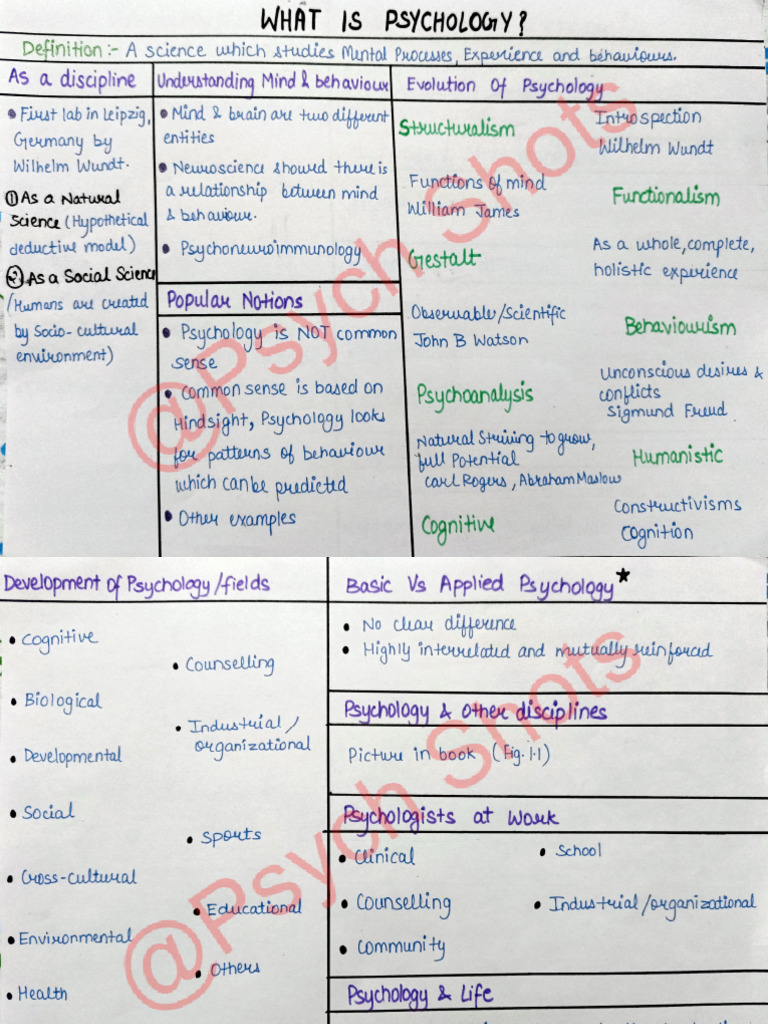 WHAT IS PSYCHOLOGY?
Definition:- A science which studies Mental Processes, Experience and behaviours.
As a discipline
• First lab in Leipzig,
Germany by
Wilhelm Wundt.
① As a Natural
Science (Hypothetical
deductive model)
② As a Social Science
(Humans are created
by Socio-cultural
environment)
Understanding Mind & behaviour
• Mind & brain are two different
entities
• Neuroscience showed there is
a relationship between mind
& behaviour.
• Psychoneuroimmunology
Popular Notions
• Psychology is NOT common
sense
• Common sense is based on
Hindsight, Psychology looks
for patterns of behaviour
which can be predicted
• Other examples
Evolution Of Psychology
Structuralism
Introspection
Wilhelm Wundt
Functions of mind
William James
Functionalism
Gestalt
As a whole, complete,
holistic experience
Observable/Scientific
John B Watson
Behaviourism
Psychoanalysis
Unconscious desires &
conflicts
Sigmund Freud
Natural Striving to grow,
full Potential
Carl Rogers, Abraham Maslow
Humanistic
Cognitive
Constructivisms
Cognition
@Psych Shots
Development of Psychology/fields
• Cognitive
• Counselling
• Biological
• Industrial/
organizational
• Developmental
• Social
• Sports
• Cross-cultural
• Educational
• Environmental
• Others
• Health
Basic Vs Applied Psychology★
• No clear difference
• Highly interrelated and mutually reinforced
Psychology & other disciplines
Picture in book (Fig. 1.1)
Psychologists at Work
• Clinical
• School
• Counselling
• Industrial/organizational
• Community
Psychology & Life
@Psych Shots